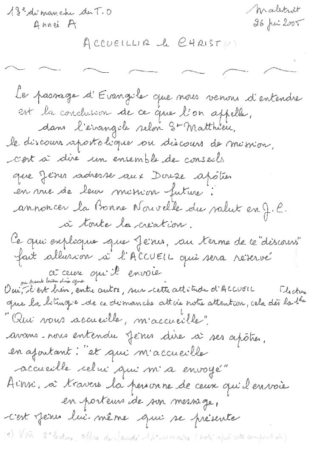 13e dimanche du T.O
Année A
Malestroit
26 juin 2005
ACCUEILLIR le CHRIST
Le passage d'Evangile que nous venons d'entendre
est la conclusion de ce que l'on appelle,
dans l'évangile selon St Matthieu,
le discours apostolique ou discours de mission,
c'est à dire un ensemble de conseils
que Jésus adresse aux Douze apôtres
en vue de leur mission future :
annoncer la Bonne Nouvelle du salut en J.C
à toute la création.
Ce qui explique que Jésus, au terme de ce "discours"
fait allusion à l'ACCUEIL qui sera réservé
à ceux qu'il envoie
Oui, c'est bien, entre autre, sur cette attitude d'ACCUEIL
que la liturgie de ce dimanche attire notre attention, cela dès la 1ère lecture
"Qui vous accueille, m'accueille",
avons-nous entendu Jésus dire à ses apôtres,
en ajoutant : "et qui m'accueille
accueille celui qui m'a envoyé"
Ainsi, à travers la personne de ceux qu'il envoie
en porteurs de son message,
c'est Jésus lui-même qui se présente